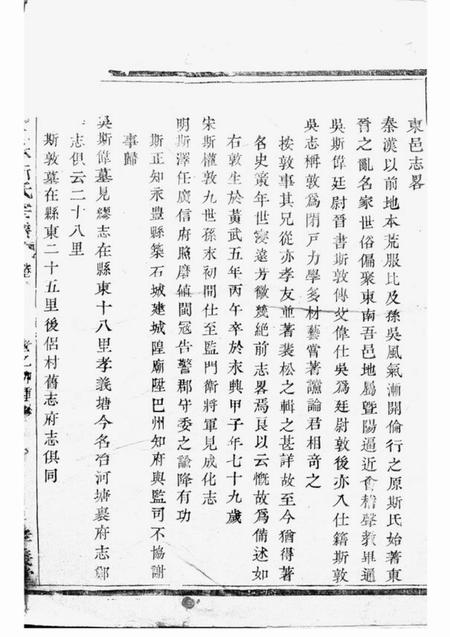 東邑志畧
秦漢以前地本荒服比及孫吳風氣漸開倫行之原斯氏始著東
晉之亂名家世俗偏聚東南吾邑地屬暨陽逼近會稽聲教畢通
吳斯偉廷尉晉書斯敦傳父偉仕吳為廷尉敦後亦入仕籍斯敦
吳志稱敦為閉戶力學多材藝嘗著讜論君相奇之
按敦事其兄從亦孝友並著裴松之輯之甚詳故至今猶得著
名史策年世寖遠芳徽幾絕前志畧焉良以云慨故為備述如
右敦生於黃武五年丙午卒於永興甲子年七十九歲
宋斯權敦九世孫永初開仕至監門衛將軍見成化志
明斯澤任廣信府照磨値閩寇告警郡守委之諭降有功
斯正知永豐縣築石城建城隍廟陞巴州知府與監司不協謝
事歸
吳斯偉墓見縣志在縣東十八里孝義塘今名冶河塘裏府志鄉
志俱云二十八里
斯敦墓在縣東二十五里後侶村舊志府志俱同